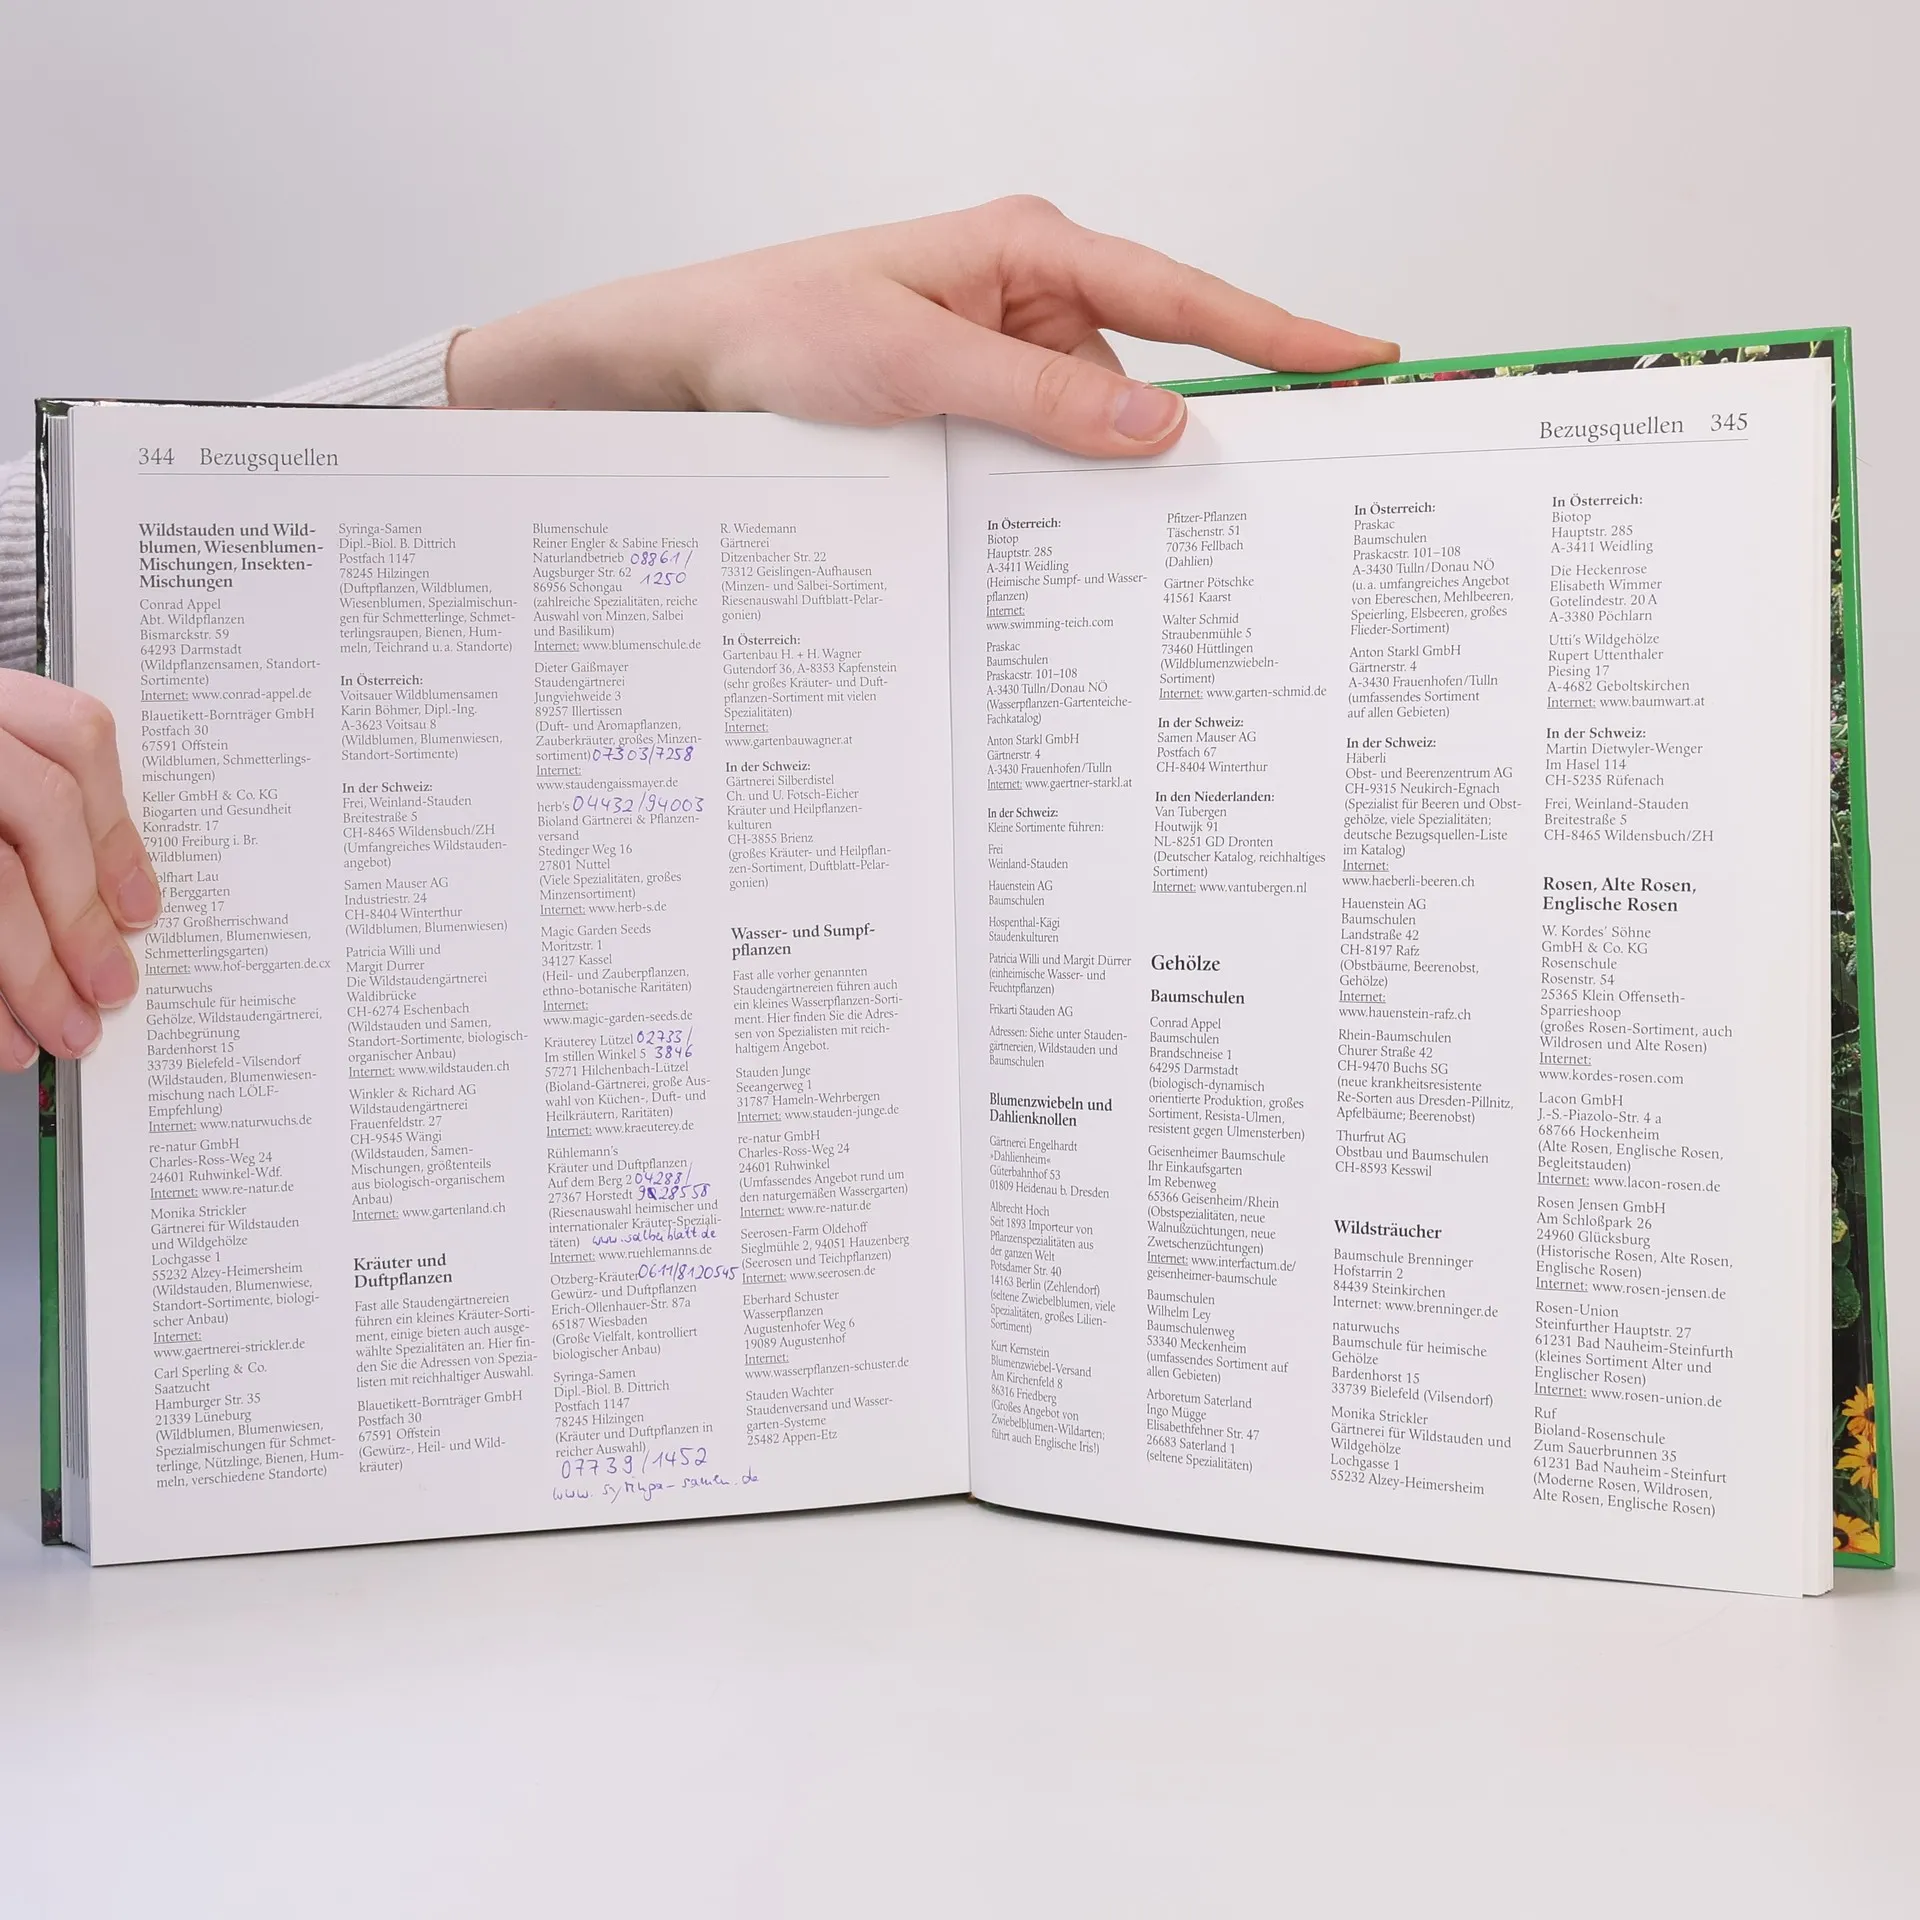 344 Bezugsquellen
Wildstauden und Wild-
blumen, Wiesenblumen-
Mischungen, Insekten-
Mischungen
Conrad Appel
Abt. Wildpflanzen
Bismarckstr. 59
64293 Darmstadt
(Wildpflanzensamen, Standort-
Sortimente)
Internet: www.conrad-appel.de
Blauetikett-Bornträger GmbH
Postfach 30
67591 Offstein
(Wildblumen, Schmetterlings-
mischungen)
Keller GmbH & Co. KG
Biogarten und Gesundheit
Konradstr. 17
79100 Freiburg i. Br.
Wildblumen)
Lau
Berggarten
17
Großherrischwand
(Wildblumen, Blumenwiesen,
Schmetterlingsgarten)
Internet: www.hof-berggarten.de.cx
naturwuchs
Baumschule für heimische
Gehölze, Wildstaudengärtnerei,
Dachbegrünung
Bardenhorst 15
33739 Bielefeld-Vilsendorf
(Wildstauden, Blumenwiesen-
mischung nach LÖLF-
Empfehlung)
Internet: www.naturwuchs.de
re-natur GmbH
Charles-Ross-Weg 24
24601 Ruhwinkel-Wdf.
Internet: www.re-natur.de
Monika Strickler
Gärtnerei für Wildstauden
und Wildgehölze
Lochgasse 1
55232 Alzey-Heimersheim
(Wildstauden, Blumenwiese,
Standort-Sortimente, biologi-
scher Anbau)
Internet:
www.gaertnerei-strickler.de
Carl Sperling & Co.
Saatzucht
Hamburger Str. 35
21339 Lüneburg
(Wildblumen, Blumenwiesen,
Spezialmischungen für Schmet-
terlinge, Nützlinge, Bienen, Hum-
meln, verschiedene Standorte)
Syringa-Samen
Dipl.-Biol. B. Dittrich
Postfach 1147
78245 Hilzingen
(Duftpflanzen, Wildblumen,
Wiesenblumen, Spezialmischun-
gen für Schmetterlinge, Schmet-
terlingsraupen, Bienen, Hum-
meln, Teichrand u. a. Standorte)
In Österreich:
Voitsauer Wildblumensamen
Karin Böhmer, Dipl.-Ing.
A-3623 Voitsau 8
(Wildblumen, Blumenwiesen,
Standort-Sortimente)
In der Schweiz:
Frei, Weinland-Stauden
Breitestraße 5
CH-8465 Wildensbuch/ZH
(Umfangreiches Wildstauden-
angebot)
Samen Mauser AG
Industriestr. 24
CH-8404 Winterthur
(Wildblumen, Blumenwiesen)
Patricia Willi und
Margit Durrer
Die Wildstaudengärtnerei
Waldibrücke
CH-6274 Eschenbach
(Wildstauden und Samen,
Standort-Sortimente, biologisch-
organischer Anbau)
Internet: www.wildstauden.ch
Winkler & Richard AG
Wildstaudengärtnerei
Frauenfeldstr. 27
CH-9545 Wängi
(Wildstauden, Samen-
Mischungen, größtenteils
aus biologisch-organischem
Anbau)
Internet: www.gartenland.ch
Kräuter und
Duftpflanzen
Fast alle Staudengärtnereien
führen ein kleines Kräuter-Sorti-
ment, einige bieten auch ausge-
wählte Spezialitäten an. Hier fin-
den Sie die Adressen von Spezia-
listen mit reichhaltiger Auswahl.
Blauetikett-Bornträger GmbH
Postfach 30
67591 Offstein
(Gewürz-, Heil- und Wild-
kräuter)
Blumenschule
Reiner Engler & Sabine Friesch
Naturlandbetrieb 08861/
Augsburger Str. 62 1250
86956 Schongau
(zahlreiche Spezialitäten, reiche
Auswahl von Minzen, Salbei
und Basilikum)
Internet: www.blumenschule.de
Dieter Gaißmayer
Staudengärtnerei
Jungviehweide 3
89257 Illertissen
(Duft- und Aromapflanzen,
Zauberkräuter, großes Minzen-
sortiment) 07303/7258
Internet:
www.staudengaissmayer.de
herb's 04432/94003
Bioland Gärtnerei & Pflanzen-
versand
Stedinger Weg 16
27801 Nuttel
(Viele Spezialitäten, großes
Minzensortiment)
Internet: www.herb-s.de
Magic Garden Seeds
Moritzstr. 1
34127 Kassel
(Heil- und Zauberpflanzen,
ethno-botanische Raritäten)
Internet:
www.magic-garden-seeds.de
Kräuterey Lützel 02733/
Im stillen Winkel 5 3846
57271 Hilchenbach-Lützel
(Bioland-Gärtnerei, große Aus-
wahl von Küchen-, Duft- und
Heilkräutern, Raritäten)
Internet: www.kraeuterey.de
Rühlemann's
Kräuter und Duftpflanzen
Auf dem Berg 2 04288/
27367 Horstedt 928558
(Riesenauswahl heimischer und
internationaler Kräuter-Speziali-
täten) www.salbeiblatt.de
Internet: www.ruehlemanns.de
Otzberg-Kräuter 0611/8120545
Gewürz- und Duftpflanzen
Erich-Ollenhauer-Str. 87a
65187 Wiesbaden
(Große Vielfalt, kontrolliert
biologischer Anbau)
Syringa-Samen
Dipl.-Biol. B. Dittrich
Postfach 1147
78245 Hilzingen
(Kräuter und Duftpflanzen in
reicher Auswahl)
07739/1452
www.syringa-samen.de
R. Wiedemann
Gärtnerei
Ditzenbacher Str. 22
73312 Geislingen-Aufhausen
(Minzen- und Salbei-Sortiment,
Riesenauswahl Duftblatt-Pelar-
gonien)
In Österreich:
Gartenbau H. + H. Wagner
Gutendorf 36, A-8353 Kapfenstein
(sehr großes Kräuter- und Duft-
pflanzen-Sortiment mit vielen
Spezialitäten)
Internet:
www.gartenbauwagner.at
In der Schweiz:
Gärtnerei Silberdistel
Ch. und U. Fotsch-Eicher
Kräuter und Heilpflanzen-
kulturen
CH-3855 Brienz
(großes Kräuter- und Heilpflan-
zen-Sortiment, Duftblatt-Pelar-
gonien)
Wasser- und Sumpf-
pflanzen
Fast alle vorher genannten
Staudengärtnereien führen auch
ein kleines Wasserpflanzen-Sorti-
ment. Hier finden Sie die Adres-
sen von Spezialisten mit reich-
haltigem Angebot.
Stauden Junge
Seeangerweg 1
31787 Hameln-Wehrbergen
Internet: www.stauden-junge.de
re-natur GmbH
Charles-Ross-Weg 24
24601 Ruhwinkel
(Umfassendes Angebot rund um
den naturgemäßen Wassergarten)
Internet: www.re-natur.de
Seerosen-Farm Oldehoff
Sieglmühle 2, 94051 Hauzenberg
(Seerosen und Teichpflanzen)
Internet: www.seerosen.de
Eberhard Schuster
Wasserpflanzen
Augustenhofer Weg 6
19089 Augustenhof
Internet:
www.wasserpflanzen-schuster.de
Stauden Wachter
Staudenversand und Wasser-
garten-Systeme
25482 Appen-Etz
Bezugsquellen 345
In Österreich:
Biotop
Hauptstr. 285
A-3411 Weidling
(Heimische Sumpf- und Wasser-
pflanzen)
Internet:
www.swimming-teich.com
Praskac
Baumschulen
Praskacstr. 101–108
A-3430 Tulln/Donau NÖ
(Wasserpflanzen-Gartenteiche-
Fachkatalog)
Anton Starkl GmbH
Gärtnerstr. 4
A-3430 Frauenhofen/Tulln
Internet: www.gaertner-starkl.at
In der Schweiz:
Kleine Sortimente führen:
Frei
Weinland-Stauden
Hauenstein AG
Baumschulen
Hospenthal-Kägi
Staudenkulturen
Patricia Willi und Margit Dürrer
(einheimische Wasser- und
Feuchtpflanzen)
Frikarti Stauden AG
Adressen: Siehe unter Stauden-
gärtnereien, Wildstauden und
Baumschulen
Blumenzwiebeln und
Dahlienknollen
Gärtnerei Engelhardt
»Dahlienheim«
Güterbahnhof 53
01809 Heidenau b. Dresden
Albrecht Hoch
Seit 1893 Importeur von
Pflanzenspezialitäten aus
der ganzen Welt
Potsdamer Str. 40
14163 Berlin (Zehlendorf)
(seltene Zwiebelblumen, viele
Spezialitäten, großes Lilien-
Sortiment)
Kurt Kernstein
Blumenzwiebel-Versand
Am Kirchenfeld 8
86316 Friedberg
(Großes Angebot von
Zwiebelblumen-Wildarten;
führt auch Englische Iris!)
Pfitzer-Pflanzen
Täschenstr. 51
70736 Fellbach
(Dahlien)
Gärtner Pötschke
41561 Kaarst
Walter Schmid
Straubenmühle 5
73460 Hüttlingen
(Wildblumenzwiebeln-
Sortiment)
Internet: www.garten-schmid.de
In der Schweiz:
Samen Mauser AG
Postfach 67
CH-8404 Winterthur
In den Niederlanden:
Van Tubergen
Houtwijk 91
NL-8251 GD Dronten
(Deutscher Katalog, reichhaltiges
Sortiment)
Internet: www.vantubergen.nl
Gehölze
Baumschulen
Conrad Appel
Baumschulen
Brandschneise 1
64295 Darmstadt
(biologisch-dynamisch
orientierte Produktion, großes
Sortiment, Resista-Ulmen,
resistent gegen Ulmensterben)
Geisenheimer Baumschule
Ihr Einkaufsgarten
Im Rebenweg
65366 Geisenheim/Rhein
(Obstspezialitäten, neue
Walnußzüchtungen, neue
Zwetschenzüchtungen)
Internet: www.interfactum.de/
geisenheimer-baumschule
Baumschulen
Wilhelm Ley
Baumschulenweg
53340 Meckenheim
(umfassendes Sortiment auf
allen Gebieten)
Arboretum Saterland
Ingo Mügge
Elisabethfehner Str. 47
26683 Saterland 1
(seltene Spezialitäten)
In Österreich:
Praskac
Baumschulen
Praskacstr. 101–108
A-3430 Tulln/Donau NÖ
(u. a. umfangreiches Angebot
von Ebereschen, Mehlbeeren,
Speierling, Elsbeeren, großes
Flieder-Sortiment)
Anton Starkl GmbH
Gärtnerstr. 4
A-3430 Frauenhofen/Tulln
(umfassendes Sortiment
auf allen Gebieten)
In der Schweiz:
Häberli
Obst- und Beerenzentrum AG
CH-9315 Neukirch-Egnach
(Spezialist für Beeren und Obst-
gehölze, viele Spezialitäten;
deutsche Bezugsquellen-Liste
im Katalog)
Internet:
www.haeberli-beeren.ch
Hauenstein AG
Baumschulen
Landstraße 42
CH-8197 Rafz
(Obstbäume, Beerenobst,
Gehölze)
Internet:
www.hauenstein-rafz.ch
Rhein-Baumschulen
Churer Straße 42
CH-9470 Buchs SG
(neue krankheitsresistente
Re-Sorten aus Dresden-Pillnitz,
Apfelbäume; Beerenobst)
Thurfrut AG
Obstbau und Baumschulen
CH-8593 Kesswil
Wildsträucher
Baumschule Brenninger
Hofstarrin 2
84439 Steinkirchen
Internet: www.brenninger.de
naturwuchs
Baumschule für heimische
Gehölze
Bardenhorst 15
33739 Bielefeld (Vilsendorf)
Monika Strickler
Gärtnerei für Wildstauden und
Wildgehölze
Lochgasse 1
55232 Alzey-Heimersheim
In Österreich:
Biotop
Hauptstr. 285
A-3411 Weidling
Die Heckenrose
Elisabeth Wimmer
Gotelindestr. 20 A
A-3380 Pöchlarn
Utti's Wildgehölze
Rupert Uttenthaler
Piesing 17
A-4682 Geboltskirchen
Internet: www.baumwart.at
In der Schweiz:
Martin Dietwyler-Wenger
Im Hasel 114
CH-5235 Rüfenach
Frei, Weinland-Stauden
Breitestraße 5
CH-8465 Wildensbuch/ZH
Rosen, Alte Rosen,
Englische Rosen
W. Kordes' Söhne
GmbH & Co. KG
Rosenschule
Rosenstr. 54
25365 Klein Offenseth-
Sparrieshoop
(großes Rosen-Sortiment, auch
Wildrosen und Alte Rosen)
Internet:
www.kordes-rosen.com
Lacon GmbH
J.-S.-Piazolo-Str. 4 a
68766 Hockenheim
(Alte Rosen, Englische Rosen,
Begleitstauden)
Internet: www.lacon-rosen.de
Rosen Jensen GmbH
Am Schloßpark 26
24960 Glücksburg
(Historische Rosen, Alte Rosen,
Englische Rosen)
Internet: www.rosen-jensen.de
Rosen-Union
Steinfurther Hauptstr. 27
61231 Bad Nauheim-Steinfurth
(kleines Sortiment Alter und
Englischer Rosen)
Internet: www.rosen-union.de
Ruf
Bioland-Rosenschule
Zum Sauerbrunnen 35
61231 Bad Nauheim-Steinfurt
(Moderne Rosen, Wildrosen,
Alte Rosen, Englische Rosen)